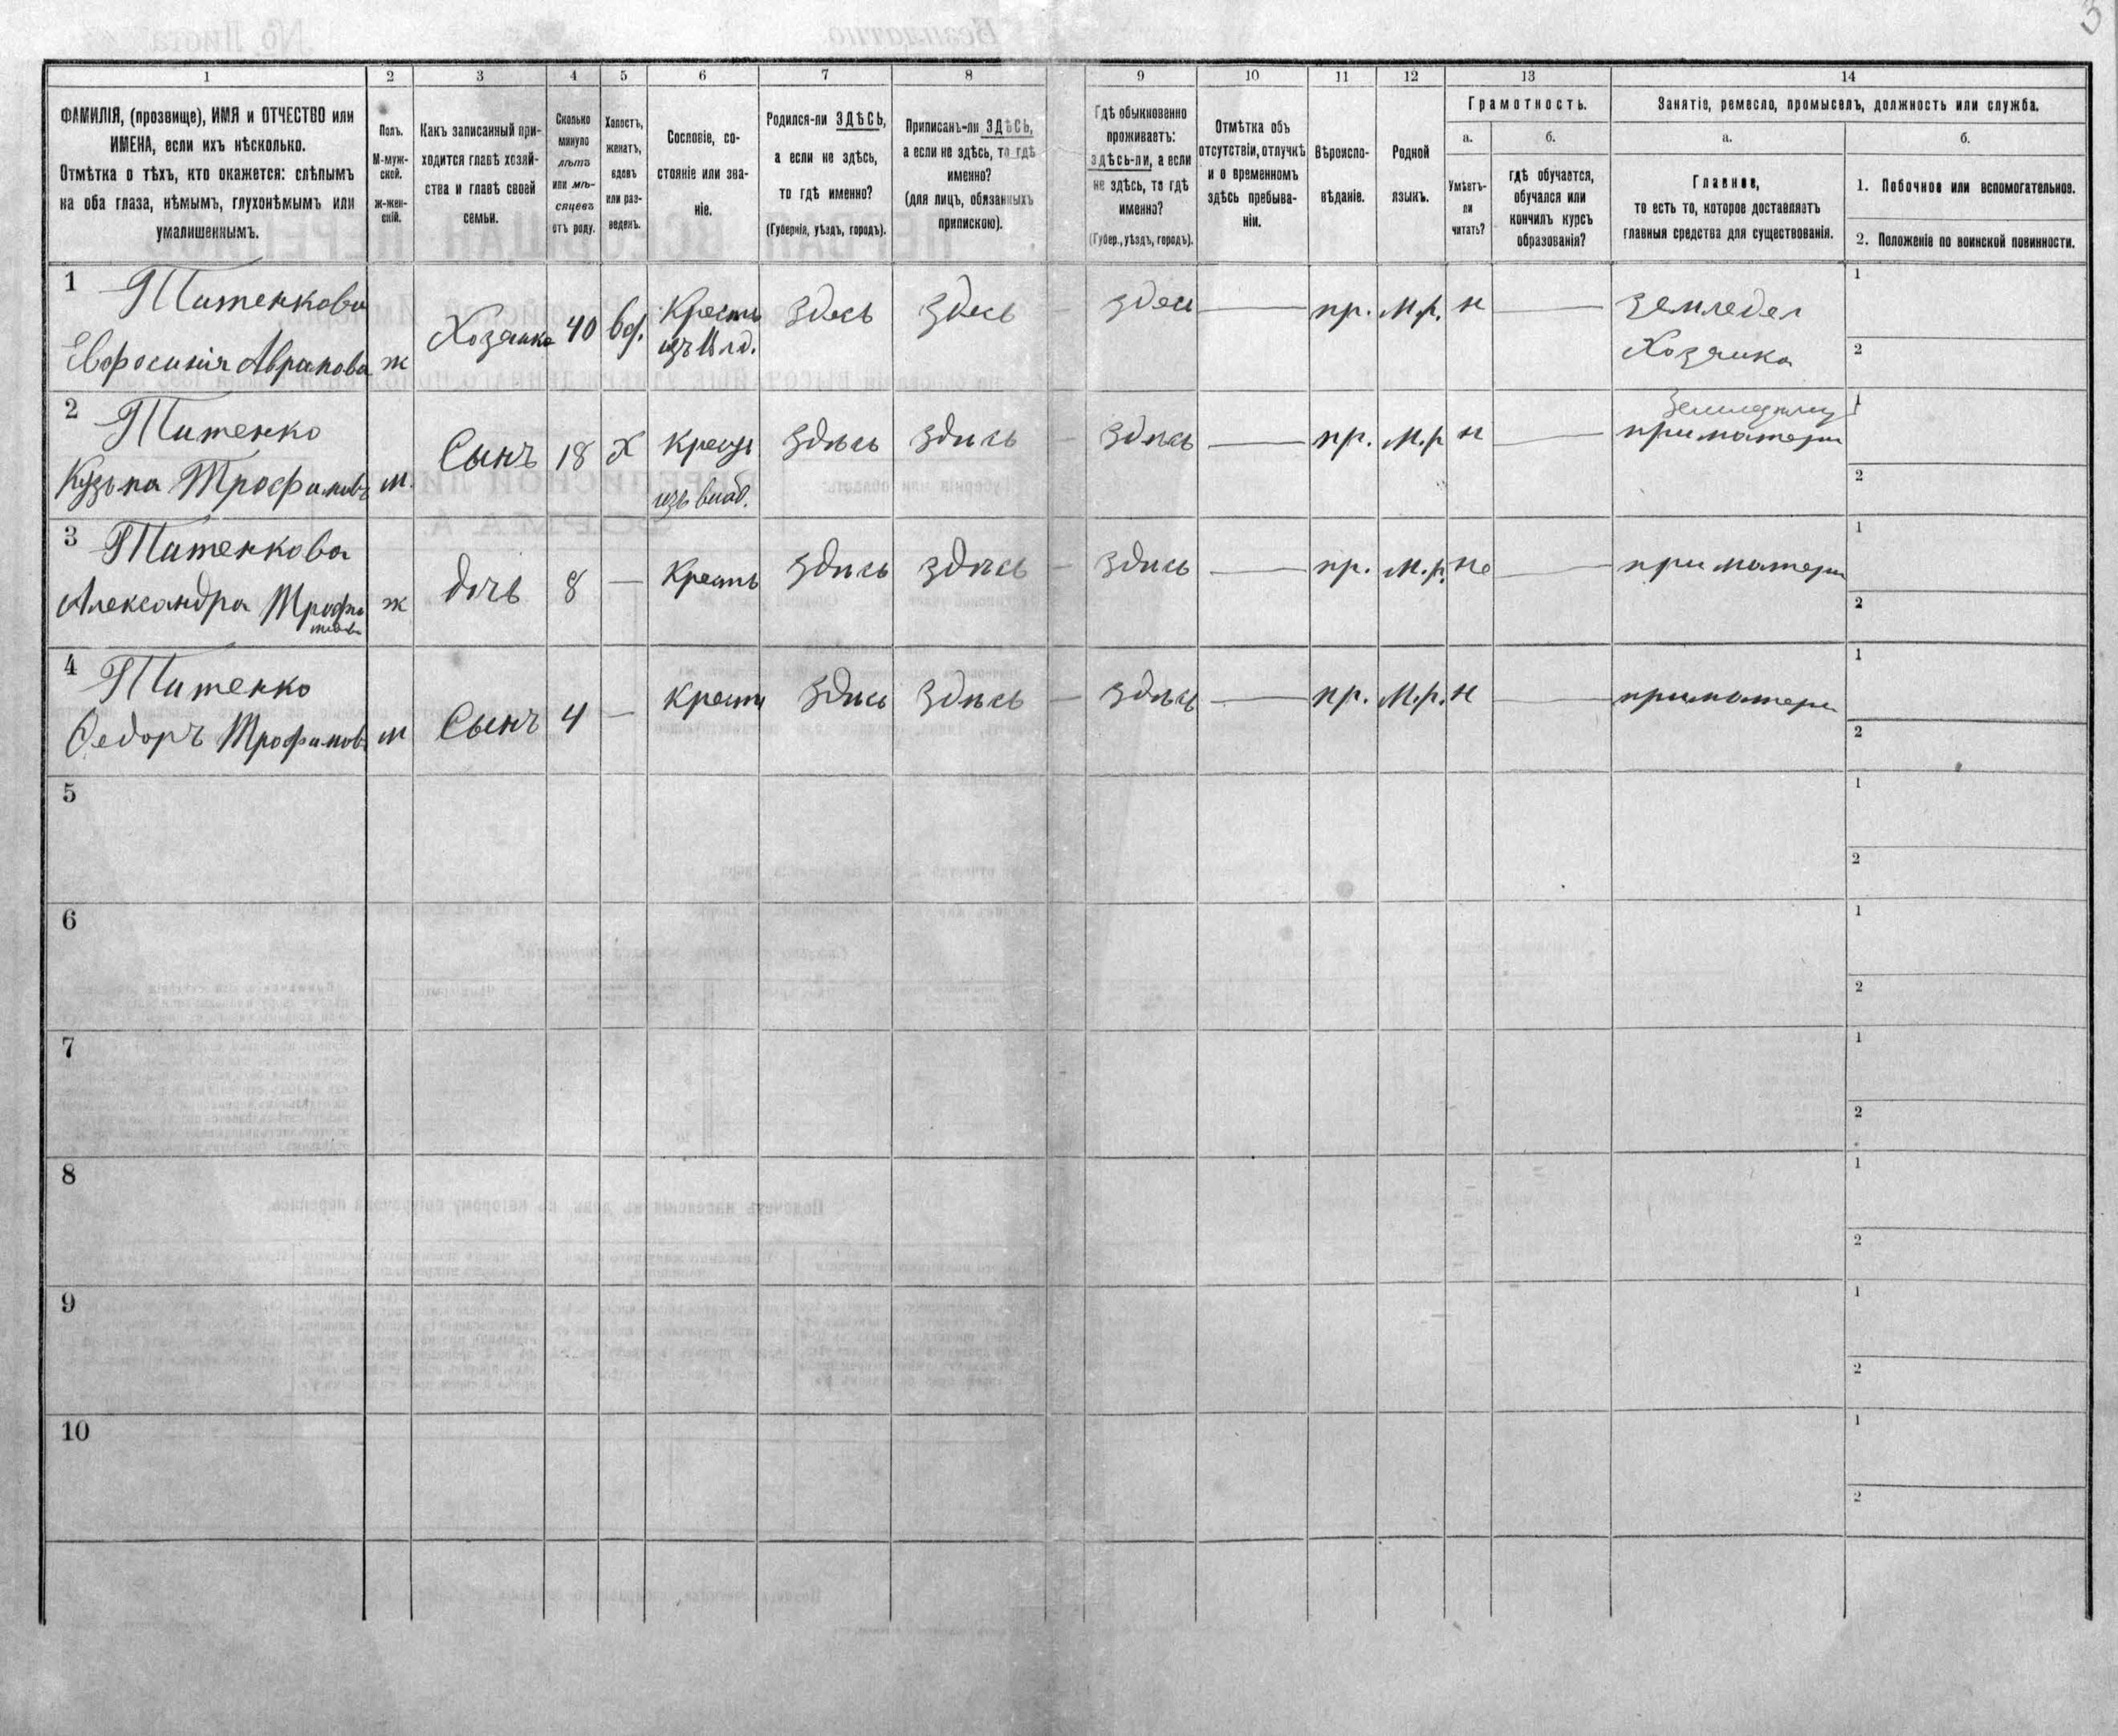 3
1 2 3 4 5 6 7 8 9 10 11 12 13 14
ФАМИЛІЯ, (прозвище), ИМЯ и ОТЧЕСТВО или
ИМЕНА, если ихъ нѣсколько.
Отмѣтка о тѣхъ, кто окажется: слѣпымъ
на оба глаза, нѣмымъ, глухонѣмымъ или
умалишеннымъ.
Полъ.
М-муж-
ской.
ж-жен-
скій.
Какъ записанный при-
ходится главѣ хозяй-
ства и главѣ своей
семьи.
Сколько
минуло
лѣтъ
или мѣ-
сяцевъ
отъ роду.
Холостъ,
женатъ,
вдовъ
или раз-
веденъ.
Сословіе, со-
стояніе или зва-
ніе.
Родился-ли ЗДѢСЬ,
а если не здѣсь,
то гдѣ именно?
(Губернія, уѣздъ, городъ).
Приписанъ-ли ЗДѢСЬ,
а если не здѣсь, то гдѣ
именно?
(для лицъ, обязанныхъ
припискою).
Гдѣ обыкновенно
проживаетъ:
здѣсь-ли, а если
не здѣсь, то гдѣ
именно?
(Губер., уѣздъ, городъ).
Отмѣтка объ
отсутствіи, отлучкѣ
и о временномъ
здѣсь пребыва-
ніи.
Вѣроиспо-
вѣданіе.
Родной
языкъ.
Грамотность.
а.
Умѣетъ-
ли
читать?
б.
гдѣ обучается,
обучался или
кончилъ курсъ
образованія?
Занятіе, ремесло, промыселъ, должность или служба.
а.
Главное,
то есть то, которое доставляетъ
главныя средства для существованія.
б.
1. Побочное или вспомогательное.
2. Положеніе по воинской повинности.
1 Титенкова
Евфосинія Аврамова ж Хозяйка 40 вд. Крестъ здесь здесь здесь — пр. М.р. н — земледел
Хозяйка
1
2
2 Титенко
Кузьма Трофимовъ м. Сынъ 18 Х Крест здѣсь здѣсь здѣсь — пр. М.р н — при матери
1
2
3 Титенкова
Александра Трофи
мова ж дочь 8 — Крестъ здѣсь здѣсь здѣсь — пр. М.р. не — при матери
1
2
4 Титенко
Ѳедоръ Трофимовъ м Сынъ 4 — Крест здѣсь здѣсь здѣсь — пр. М.р. н — при матери
1
2
5
1
2
6
1
2
7
1
2
8
1
2
9
1
2
10
1
2